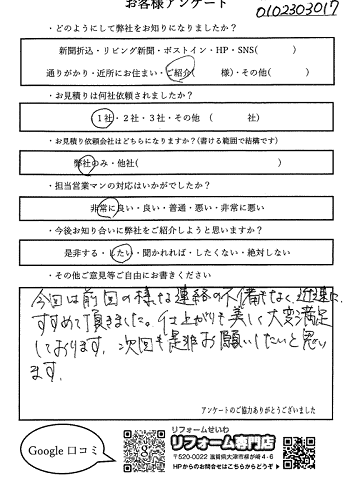 お客様アンケート
0102303017
・どのようにして弊社をお知りになりましたか？
新聞折込・リビング新聞・ポストイン・HP・SNS(　　　)
通りがかり・近所にお住まい・ご紹介(　　　様)・その他(　　　)
・お見積りは何社依頼されましたか？
1社・2社・3社・その他　(　　　社)
・お見積り依頼会社はどちらになりますか？(書ける範囲で結構です)
弊社のみ・他社(　　　)
・担当営業マンの対応はいかがでしたか？
非常に良い・良い・普通・悪い・非常に悪い
・今後お知り合いに弊社をご紹介しようと思いますか？
是非する・したい・聞かれれば・したくない・絶対しない
・その他ご意見等ご自由にお書きください
今回は前回の様な連絡の不備もなく、迅速に
すすめて頂きました。仕上がりも美しく大変満足
しております。次回も是非お願いしたいと思い
ます。
アンケートのご協力ありがとうございました
Google 口コミ
リフォームせいわ
リフォーム専門店
〒520-0022 滋賀県大津市柳が崎4-6
HPからのお問合せはこちらからどうぞ